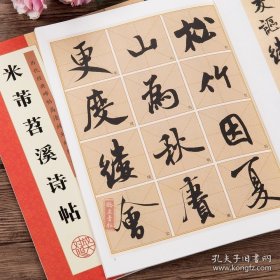 松竹因夏
山為秋賡
更度縷會
米芾苕溪诗帖
孔夫子旧书网